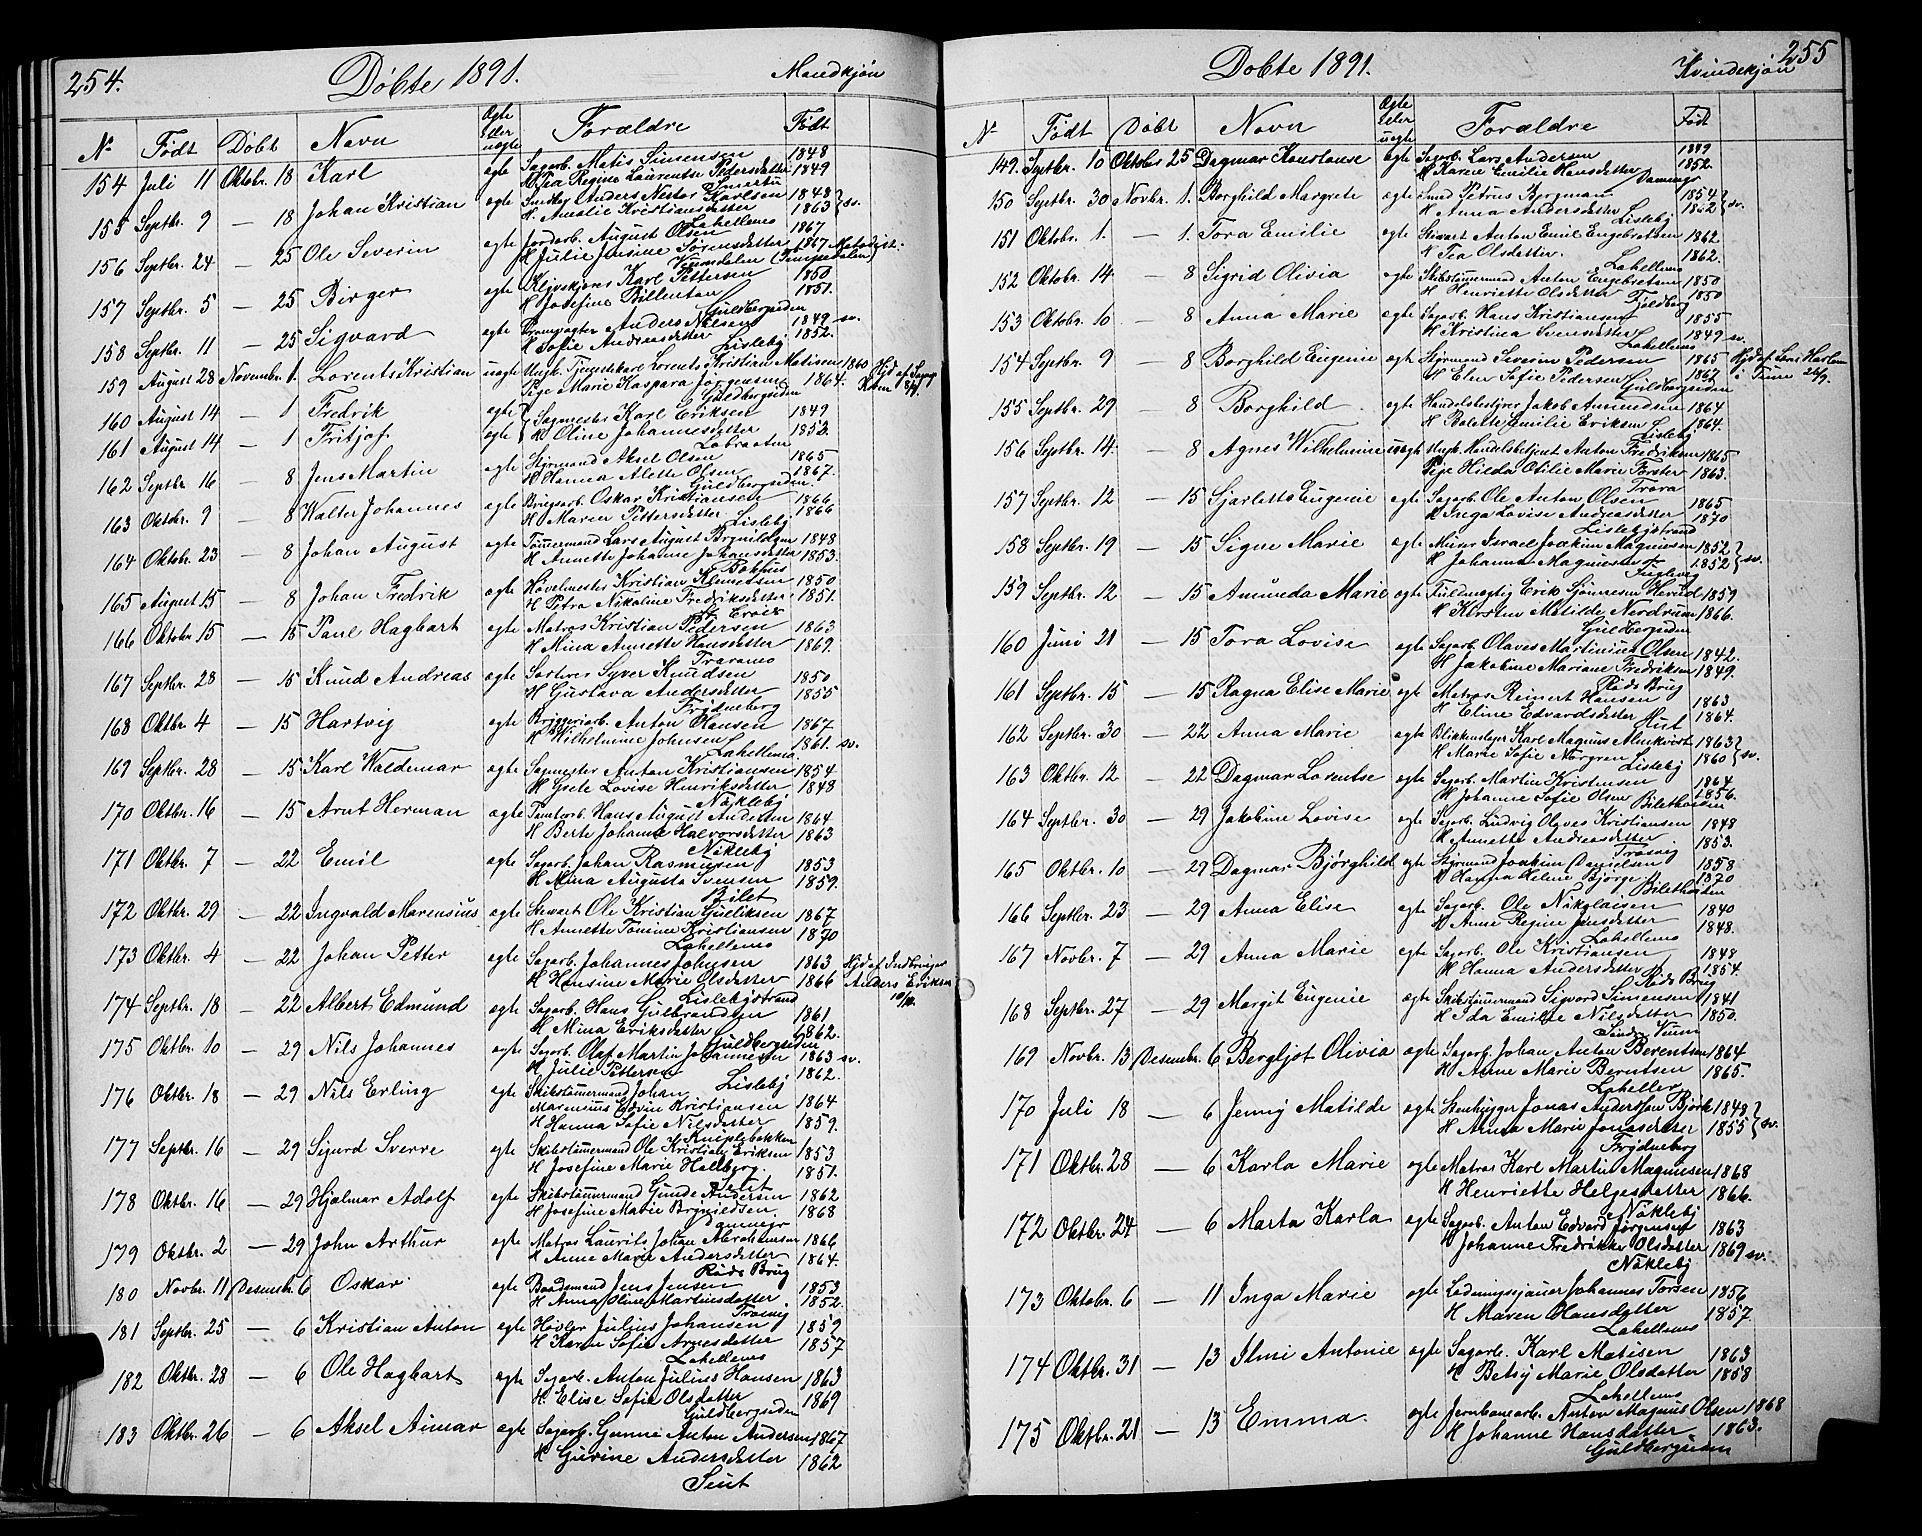 254. Døbte 1891. Mandkjøn
No Født Døbt Navn Ægte eller uægte Forældre Født
154 Juli 11 Oktobr. 18 Karl ægte Sagarb. Matis Simensen 1848
H. Tea Regine Laurentse Pedersdatter 1849
155 Septbr. 9 — 18 Johan Kristian ægte Anders Nestor Karlsen 1848 } sv.
H. Amalie Kristiansdatter 1863
Labellemo
156 Septbr. 24 — 25 Ole Severin ægte Jordarb. August Olsen 1867
H. Julie Jensine Sørensdatter 1867 Metodist.
157 Septbr. 5 — 25 Birger ægte Karl Pettersen 1850
H. Josefine Billentan 1851.
Guldbergsiden
158 Septbr. 11 — 25 Sigvard ægte Anders Nilsen 1849 sv.
H. Sofie Andreasdatter 1852.
Lisleby
159 August 28 Novembr. 1. Lorents Kristian uægte Ungk. Tjenestekarl Lorents Kristian Matisen 1860
Pige Marie Kaspara Jørgensen 1864.
Guldbergsiden
160 August 14 — 1 Fredrik ægte } Sagmester Karl Eriksen 1849
161 August 14 — 1 Fritjof ægte H. Oline Johannesdatter 1853.
162 Septbr. 16 — 8 Jens Martin ægte Styrmand Aksel Olsen 1865
H. Hanna Alette Olsen 1867.
Guldbergsiden.
163 Oktobr. 9 — 8 Walter Johannes ægte Brugsarb. Oskar Kristiansen 1866
H. Maren Pettersdatter 1866
Lisleby
164 Oktobr. 23 — 8 Johan August ægte Tømmermand Lars August Brynildsen 1848
H. Annette Johanne Johansdatter 1853.
Bakhus
165 August 15 — 8 Johan Fredrik ægte Høvelmester Kristian Klemetsen 1850
H. Petra Nikoline Fredriksdatter 1851.
166 Oktobr. 15 — 15 Paul Hagbart ægte Matros Kristian Pedersen 1863
H. Mina Annette Hansdatter 1869.
Traramo
167 Septbr. 28 — 15 Knud Andreas ægte Syver Knudsen 1850
H. Gustava Andersdatter 1855
Frydneberg
168 Oktbr. 4 — 15 Hartvig ægte Bryggeriarb. Anton Hansen 1867
H. Wilhelmine Johnsen 1861. sv.
Labellemo
169 Septbr. 28 — 15 Karl Waldemar ægte Sagmester Anton Kristiansen 1854
H. Gsele Lovise Henriksdatter 1848
Nøkleby
170 Oktbr. 16 — 15 Arnt Herman ægte Tomtarb. Hans August Andersen 1864
H. Berte Johanne Halvorsdatter 1863
Nøkleby
171 Oktbr. 7 — 22 Emil ægte Sagarb. Johan Rasmussen 1853
H. Mina Augusta Svensen 1859.
Bilet
172 Oktbr. 29 — 22 Ingvald Marensius ægte Stewart Ole Kristian Guliksen 1867
H. Annette Tomine Kristiansen 1870
Labellemo
173 Oktbr. 4 — 22 Johan Petter ægte Sagarb. Johannes Johnsen 1863
H. Hansine Marie Olsdatter 1866
Lislebystrand
174 Septbr. 18 — 22 Albert Edmund ægte Sagarb. Hans Gulbrandsen 1861
H. Mina Eriksdatter 1862.
Guldbergsiden
175 Oktbr. 10 — 29 Nils Johannes ægte Sagarb. Olaf Martin Johannesen 1863 sv.
H. Julie Pettersen 1862.
Lisleby
176 Oktbr. 18 — 29 Nils Erling ægte Skibstømermand Johan
Marensius Edvin Kristiansen 1864
H. Hanna Sofie Nilsdatter 1859.
Kniplebakken
177 Septbr. 16 — 29 Sigurd Sverre ægte Skibstømermand Ole Kristian Eriksen 1853
H. Josefine Marie Hallberg. 1851.
178 Oktbr. 16 — 29 Hjalmar Adolf ægte Skibstømermand Gunde Andersen 1862
H. Josefine Marie Brynildsen. 1868
179 Oktbr. 2 — 29 John Arthur ægte Matros Laurits Johan Abrahamsen 1866
H. Anne Marie Andersdatter 1864.
Røds Brug
180 Novbr. 11 Desembr. 6 Oskar ægte Baadsmand Jens Jensen 1853
H. Anna Oline Martinsdatter 1852.
Trosvig
181 Septbr. 25 — 6 Kristian Anton ægte Høvler Julius Johansen 1859
H. Karen Sofie Arnesdatter 1857
Labellemo
182 Oktbr. 28 — 6 Ole Hagbart ægte Sagarb. Anton Julius Hansen 1863
H. Elise Sofie Olsdatter 1869
Guldbergsiden
183 Oktbr. 26 — 6 Aksel Aimar ægte Sagarb. Gunne Anton Andersen 1867
H. Gurine Andersdatter 1862
Sint
Døbte 1891. Kvindekjøn 255
No Født Døbt Navn Ægte eller uægte Forældre Født
149. Septbr. 10 Oktober 25 Dagmar Konstanse ægte Sagarb. Lars Andersen 1849
H. Karen Emilie Hansdatter 1852.
150 Septbr. 30 Novbr. 1. Borghild Margrete ægte Smed Petrus Bergman 1854 } sv.
H. Anna Andersdatter 1852
Lisleby
151 Oktobr. 1. — 1. Tora Emilie ægte Stewart Anton Emil Engebretsen 1862
H. Tea Olsdatter. 1862.
Labellemo
152 Oktobr. 14. — 8 Sigrid Olivia ægte Skibstømermand Anton Engebretsen 1850
H. Henriette Olsdatter 1850
153 Oktobr. 10 — 8 Anna Marie ægte Sagarb. Hans Kristiansen 1855
H. Kristina Simesdatter 1849 sv.
Labellemo
154 Septbr. 9 — 8 Borghild Eugenie ægte Styrmand Severin Pedersen 1865
H. Elen Sofie Pedersen 1867
Guldbergsiden
155 Septbr. 29 — 8 Borghild. ægte Handelsbestyrer Jakob Amundsen 1864
H. Bolette Emilie Eriksen 1864.
Lisleby
156 Septbr. 14. — 8 Agnes Wilhelmine uægte Ungk. Handelsbetjent Anton Fredriksen 1865
Pige Hilda Otilie Marie Forster 1863.
Trara
157 Septbr. 12 — 15 Sjarlotte Eugenie ægte Sagarb. Ole Anton Olsen 1865
H. Inga Lovise Andreasdatter 1870
Lislebystrand
158 Septbr. 19 — 15 Signe Marie ægte Murer Israel Joakim Magnusen 1852 } sv.
H. Johanne Magnusen 1852
159 Septbr. 12 — 15 Amunda Marie ægte Fuldmægtig Erik Gjønnesen Herud 1859
H. Kirsten Matilde Nordrum 1866.
Guldbergsiden
160 Juni 21 — 15 Tora Lovise ægte Sagarb. Olaves Martinius Olsen 1842.
H. Jakobine Mariane Fredriksen 1849.
Røds Brug
161 Septbr. 15 — 15 Ragna Elise Marie ægte Matros Reinert Hansen 1863
H. Eline Edvardsdatter 1864.
162 Septbr. 30 — 22 Anna Marie ægte Blikkenslager Karl Magnus Almkvist 1863 } sv.
H. Marie Sofie Norgren 1860
Lisleby
163 Oktbr. 12 — 22 Dagmar Lorentse ægte Sagarb. Martin Kristensen 1864
H. Johanne Sofie Olsen 1856.
Biletholen
164 Septbr. 30 — 29 Jakobine Lovise ægte Sagarb. Ludvig Olaves Kristiansen 1848
H. Annette Andreasdatter 1853.
Trosvig
165 Oktbr. 10 — 29 Dagmar Bjørghild ægte Styrmand Joakim Danielsen 1858
H. Hanna Helene Bjørge 1870
Biletholen
166 Septbr. 23 — 29 Anna Elise ægte Sagarb. Ole Nikolaisen 1840
H. Anne Regine Jensdatter 1848.
Labellemo
167 Novbr. 7 — 29 Anna Marie ægte Sagarb. Ole Kristiansen 1848
H. Hanna Andersdatter 1854.
Røds Brug
168 Septbr. 27 — 29 Margit Eugenie ægte Skibstømermand Sigvard Simensen 1841
H. Ida Emilie Nilsdatter 1850.
169 Novbr. 13 Desembr. 6 Bergljot Olivia ægte Sagarb. Johan Anton Berentsen 1864
H. Anne Marie Berntsen 1865.
Labellen
170 Juli 18 — 6 Jenny Matilde ægte Stenhugger Jonas Andersson Bjørk 1848 } sv.
H. Anna Maria Jonasdatter 1855
Frydneberg
171 Oktbr. 28 — 6 Karla Marie ægte Matros Karl Martin Magnusen 1868
H. Henriette Helgesdatter 1866.
Nøkleby
172 Oktbr. 24 — 6 Marta Karla ægte Sagarb. Anton Edvard Jørgensen 1863
H. Johanne Fredrikke Olsdatter 1869 sv.
Nøkleby
173 Oktobr. 6 — 11 Inga Marie ægte Johannes Torsen 1856
H. Maren Hansdatter 1857.
Labellemo
174 Oktbr. 31 — 13 Ilmi Antonie ægte Sagarb. Karl Matisen 1863
H. Betsy Marie Olsdatter 1858
Labellemo
175 Oktbr. 21 — 13 Emma. ægte Jernbanearb. Anton Magnus Olsen 1868
H. Johanne Hansdatter 1863.
Guldbergsiden